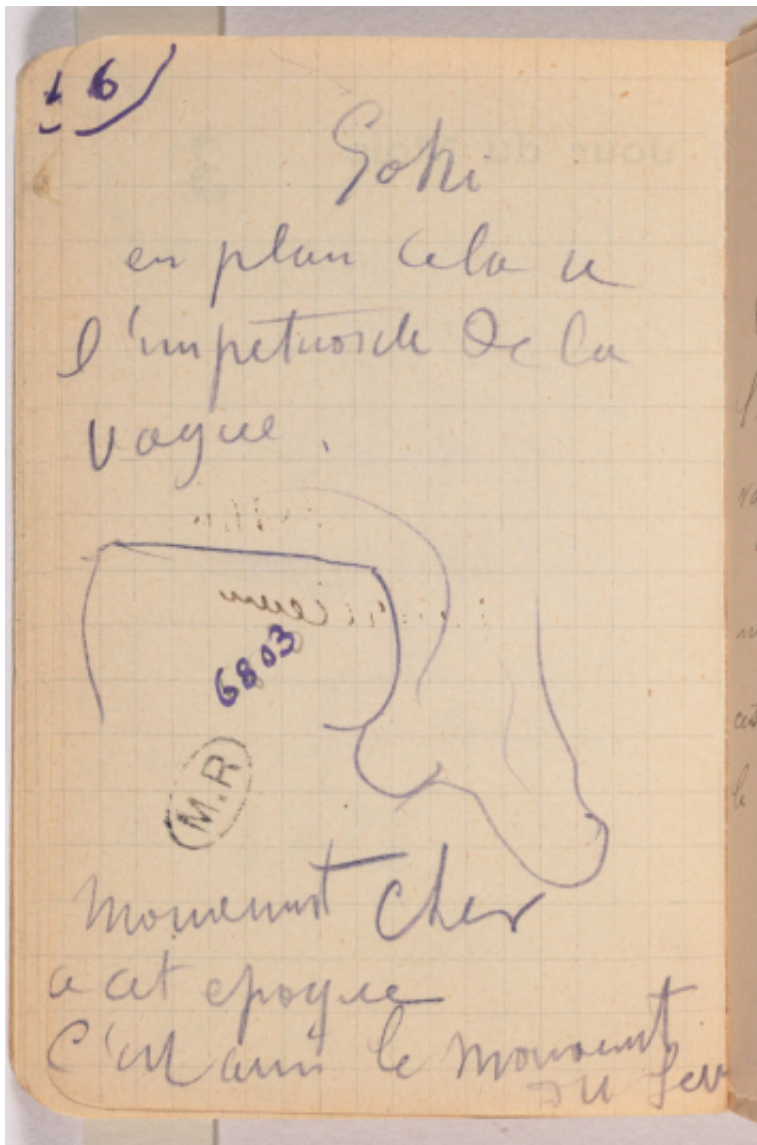 16
en plan cela a
l'impetuosité de la
vague.
6803
M.R
mouvement cher
a cet epoque
c'est aussi le mouvement
du